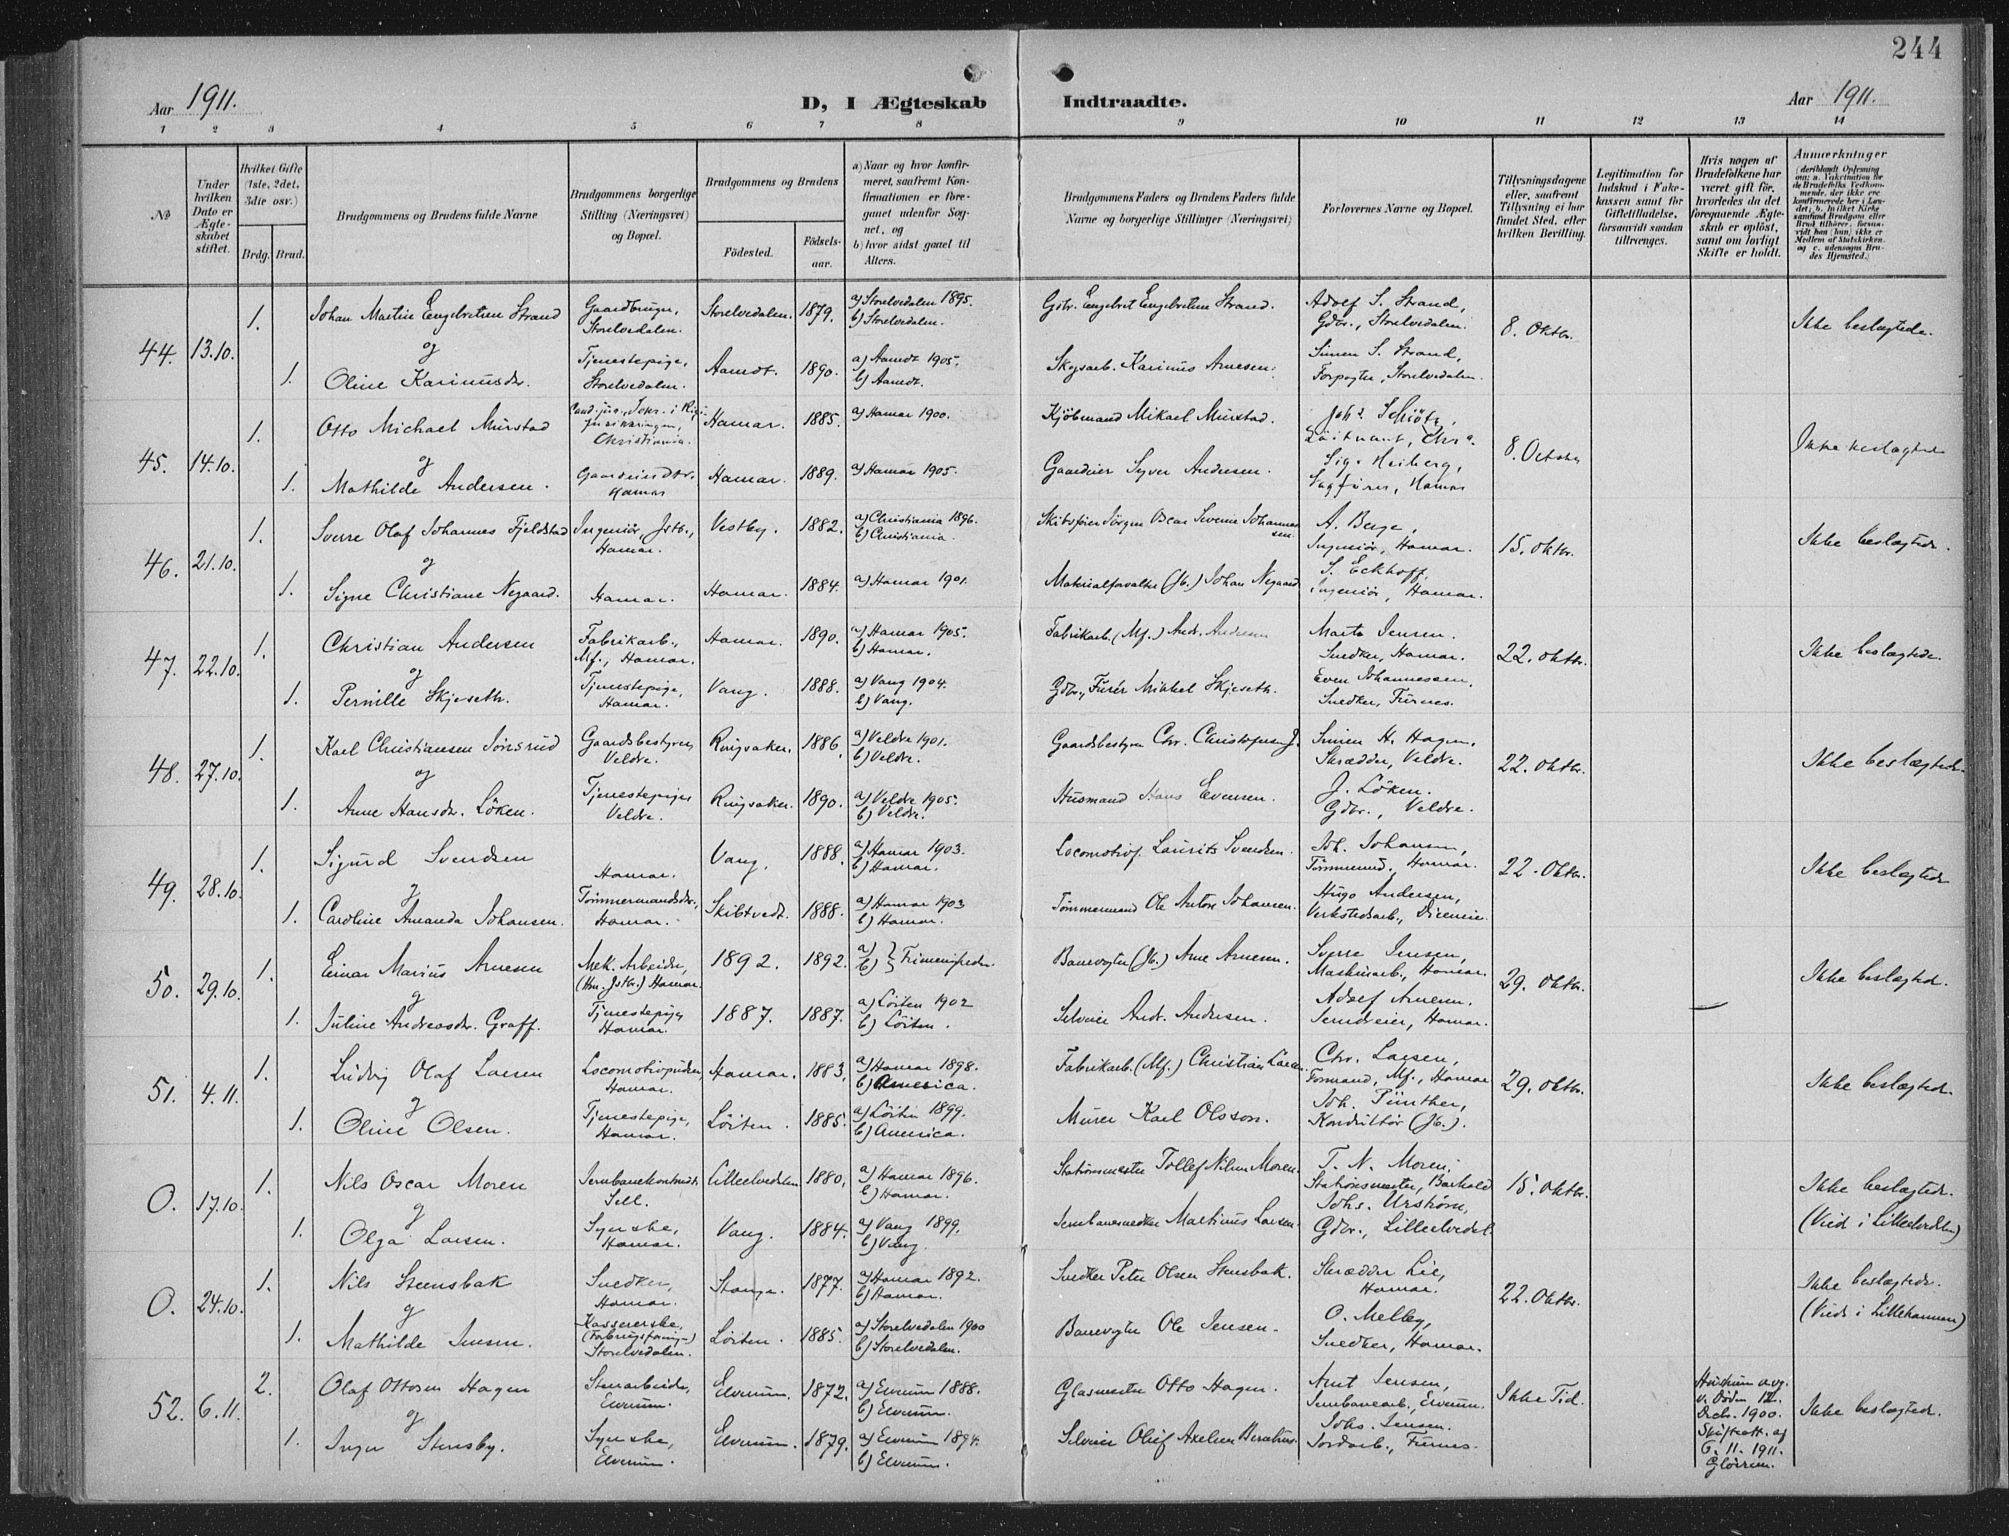 244
Aar 1911.
D, I Ægteskab Indtraadte.
Aar 1911.
1 2 3 4 5 6 7 8 9 10 11 12 13 14
No
Under hvilken Dato er Ægteskabet stiftet.
Hvilket Gifte (1ste, 2det, 3die osv.)
Brdg. Brud.
Brudgommens og Brudens fulde Navne
Brudgommens borgerlige Stilling (Næringsvei) og Bopæl.
Brudgommens og Brudens
Födested.
Födselsaar.
a) Naar og hvor konfirmeret, saafremt Konfirmationen er foregaaet udenfor Sognet, og
b) hvor sidst gaaet til Alters.
Brudgommens Faders og Brudens Faders fulde Navne og borgerlige Stillinger (Næringsvei)
Forlovernes Navne og Bopæl.
Tillysningsdagene eller, saafremt Tillysning ei har fundet Sted, efter hvilken Bevilling.
Legitimation for Indskud i Enkekassen samt for Giftetilladelse, forsaavidt saadan tiltrænges.
Hvis nogen af Brudefolkene har været gift før, hvorledes da det foregaaende Ægteskab er opløst, samt om lovligt Skifte er holdt.
Anmærkninger
44. 13.10. 1. Johan Martin Engebretsen Strand Gaardbruger, Storelvedalen. Storelvedalen. 1879. a) Storelvedalen 1895. b) Storelvedalen. Gdbr. Engebret Engebretsen Strand. Adolf S. Strand, Gdbr., Storelvedalen. 8. Oktbr. Ikke beslægtede.
og
1. Oline Karinusdr. Tjenestepige, Storelvedalen. Aamot. 1890. a) Aamot 1905. b) Aamot. Skogsarb. Karinus Arnesen. Simen S. Strand, Forpagter, Storelvedalen.
45. 14.10. 1. Otto Michael Murstad Christiania. Hamar. 1885. a) Hamar 1900. Kjöbmand Mikael Murstad. Johs. Schiötz, Löitnant, Chra. 8. October Ikke beslægtede
og
1. Mathilde Andersen. Gaardeierdtr. Hamar Hamar. 1889. a) Hamar 1905. Gaardeier Syver Andersen. Sig. Heiberg, Sagförer, Hamar
46. 21.10. 1. Sverre Olaf Johannes Fjeldstad Ingeniör, Jstb., Hamar. Vestby. 1882. a) Christiania 1896. b) Christiania. Skibsförer Jörgen Oscar Severin Johannessen. A. Berge, Ingeniör, Hamar. 15. Oktbr. Ikke beslægtede.
og
1. Signe Christiane Negaard. Hamar. Hamar. 1884. a) Hamar 1901. Materialforvalter (Jb.) Johan Negaard S. Eckhoff, Ingeniör, Hamar.
47. 22.10 1. Christian Andersen Fabrikarb., Mf., Hamar. Hamar. 1890. a) Hamar 1905. b) Hamar. Fabrikarb. (Mf.) Andr. Andersen Martin Jensen. Snedker, Hamar. 22. Oktbr. Ikke beslægtede.
og
1. Pernille Skjeseth. Tjenestepige, Hamar. Vang. 1888. a) Vang 1904. b) Vang. Gdbr., Mikkel Skjeseth. Even Johannessen, Snedker, Furnes.
48. 27.10. 1. Karl Christiansen Jönsrud Gaardsbestyrer, Veldre. Ringsaker. 1886. a) Veldre 1901. b) Veldre. Gaardsbestyrer Chr. Christophersen J. Simen H. Hagen, Skrædder, Veldre. 22. Oktbr. Ikke beslægtede.
og
1. Anne Hansdr. Löken. Tjenestepige Veldre. Ringsaker. 1890. a) Veldre 1905. b) Veldre. Husmand Hans Evensen. J. Löken. Gdbr., Veldre.
49. 28.10 1. Sigurd Svendsen Hamar. Vang. 1888. a) Hamar 1903. b) Hamar. Locomotivf. Laurits Svendsen. Joh. Johansen, Tömmermd., Hamar. 22. Oktbr. Ikke beslægtede
og
1. Caroline Amanda Johansen. Tömmermandsdtr., Hamar. Skibtvedt. 1888. a) Hamar 1903 b) Hamar. Tömmermand Ole Anton Johansen. Hugo Andersen, Verkstedsarb., Disenvei.
50. 29.10. 1. Einar Marius Arnesen Mek. Arbeider, Hamar. 1892. 1892. a) b) } Frimenigheden. Banevogter (Jb.) Arne Arnesen. Sverre Jensen, Maskinarb., Hamar. 29. Oktbr. Ikke beslægtede.
og
1. Juline Andreasdr. Graff. Tjenestepige Hamar. 1887. 1887. a) Löiten 1902 b) Löiten. Selveier Andr. Andersen. Adolf Arnesen. Hamar.
51. 4.11. 1. Ludvig Olaf Larsen Locomotivpudser, Hamar. Hamar. 1883. a) Hamar 1898. b) America. Fabrikarb. (Mf.) Christian Larsen. Chr. Larsen, Formand, Mf., Hamar 29. Oktbr. Ikke beslægtede.
og
1. Oline Olsen. Tjenestepige, Hamar. Löiten. 1885. a) Löiten 1899. b) America. Murer Karl Olsson. Joh. Pünther, Konduktör (Jb.).
O. 17.10. 1. Nils Oscar Moren Jernbanekontorist Sell. Lilleelvedalen 1880. a) Hamar 1896. b) Hamar. Stationsmester Tollef Nilsen Moren. T. N. Moren, Stationsmester, Barkald 15. Oktbr. Ikke beslægtede. (Viede i Lilleelvedalen)
og
1. Olga Larsen. Syerske, Hamar. Vang. 1884. a) Vang 1899. b) Vang. Jernbanesnedker Martinus Larsen Johs. Urström, Gdbr., Lilleelvedal.
O. 24.10. 1. Nils Steensbak Snedker, Hamar. Stange. 1877. a) Hamar 1892. b) Hamar. Snedker Peter Olsen Stensbak. Skrædder Lie, Hamar. 22. Oktbr. Ikke beslægtede. (Viede i Lillehammer)
og
1. Mathilde Jensen. Kassererske, Storelvedalen. Löiten. 1885. a) Storelvedalen 1900 b) Storelvedalen. Banevogter Ole Jensen. O. Melby, Snedker, Hamar.
52. 6.11. 2. Olaf Ottosen Hagen Stenarbeider, Elverum. Elverum. 1872. a) Elverum 1888. b) Elverum. Glasmester Otto Hagen. Arnt Jensen, Jernbanearb., Elverum. Ikke Tid. Decbr. 1900. Skifteatt. af 6.11.1911. Ikke beslægtede.
og
1. Inger Stensby. Syerske, Elverum. Elverum. 1879. a) Elverum 1894. b) Elverum. Selveier Oluf Axelsen Johs. Jensen. Jordarb., Furnes.